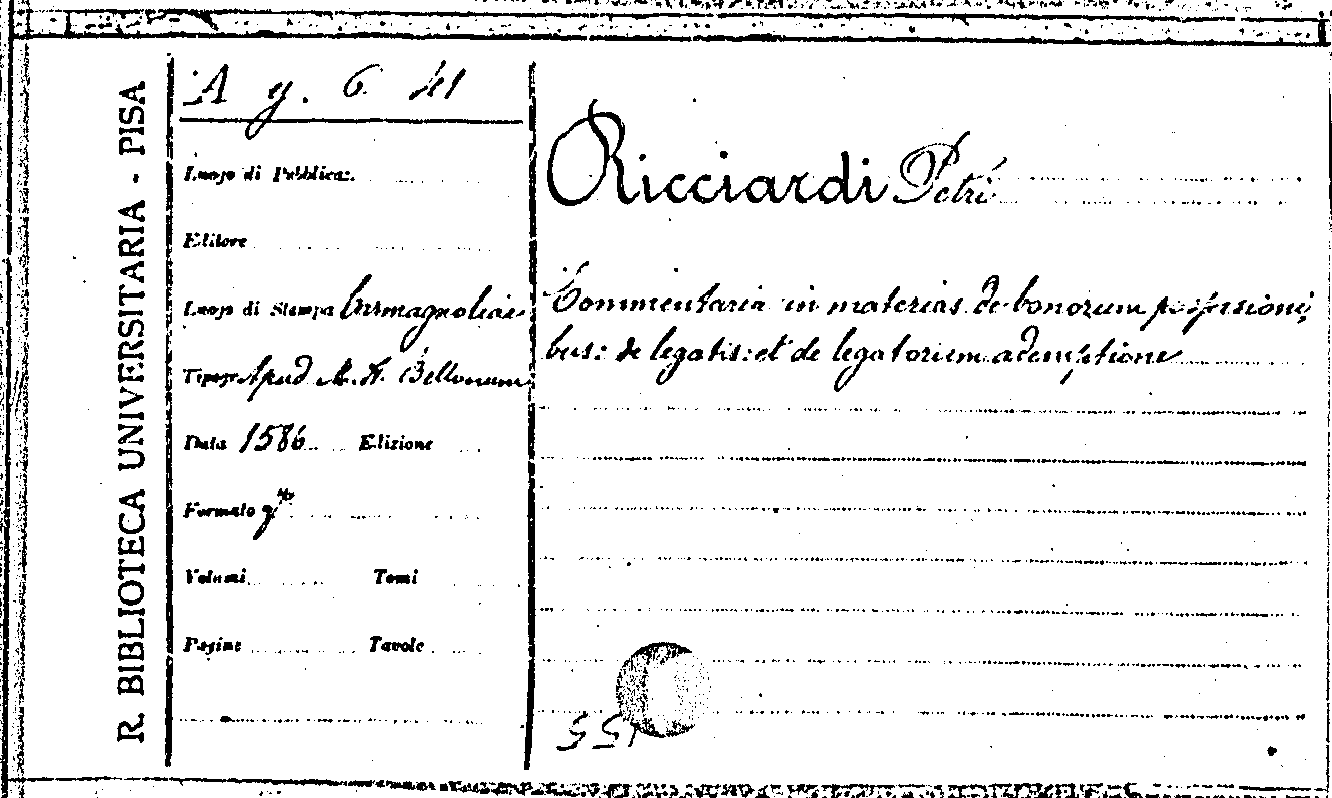 R. BIBLIOTECA UNIVERSITARIA - PISA
A y. 6 41
Luogo di Pubblicaz.
Editore
Luogo di Stampa Carmagnoliae
Tipogr. Apud M. A. Bellonum
Data 1586 Edizione
Formato 4to
Volumi Tomi
Pagine Tavole
Ricciardi Petri
Commentaria in materias de bonorum possessioni,
bus: de legatis: et de legatorum ademptione